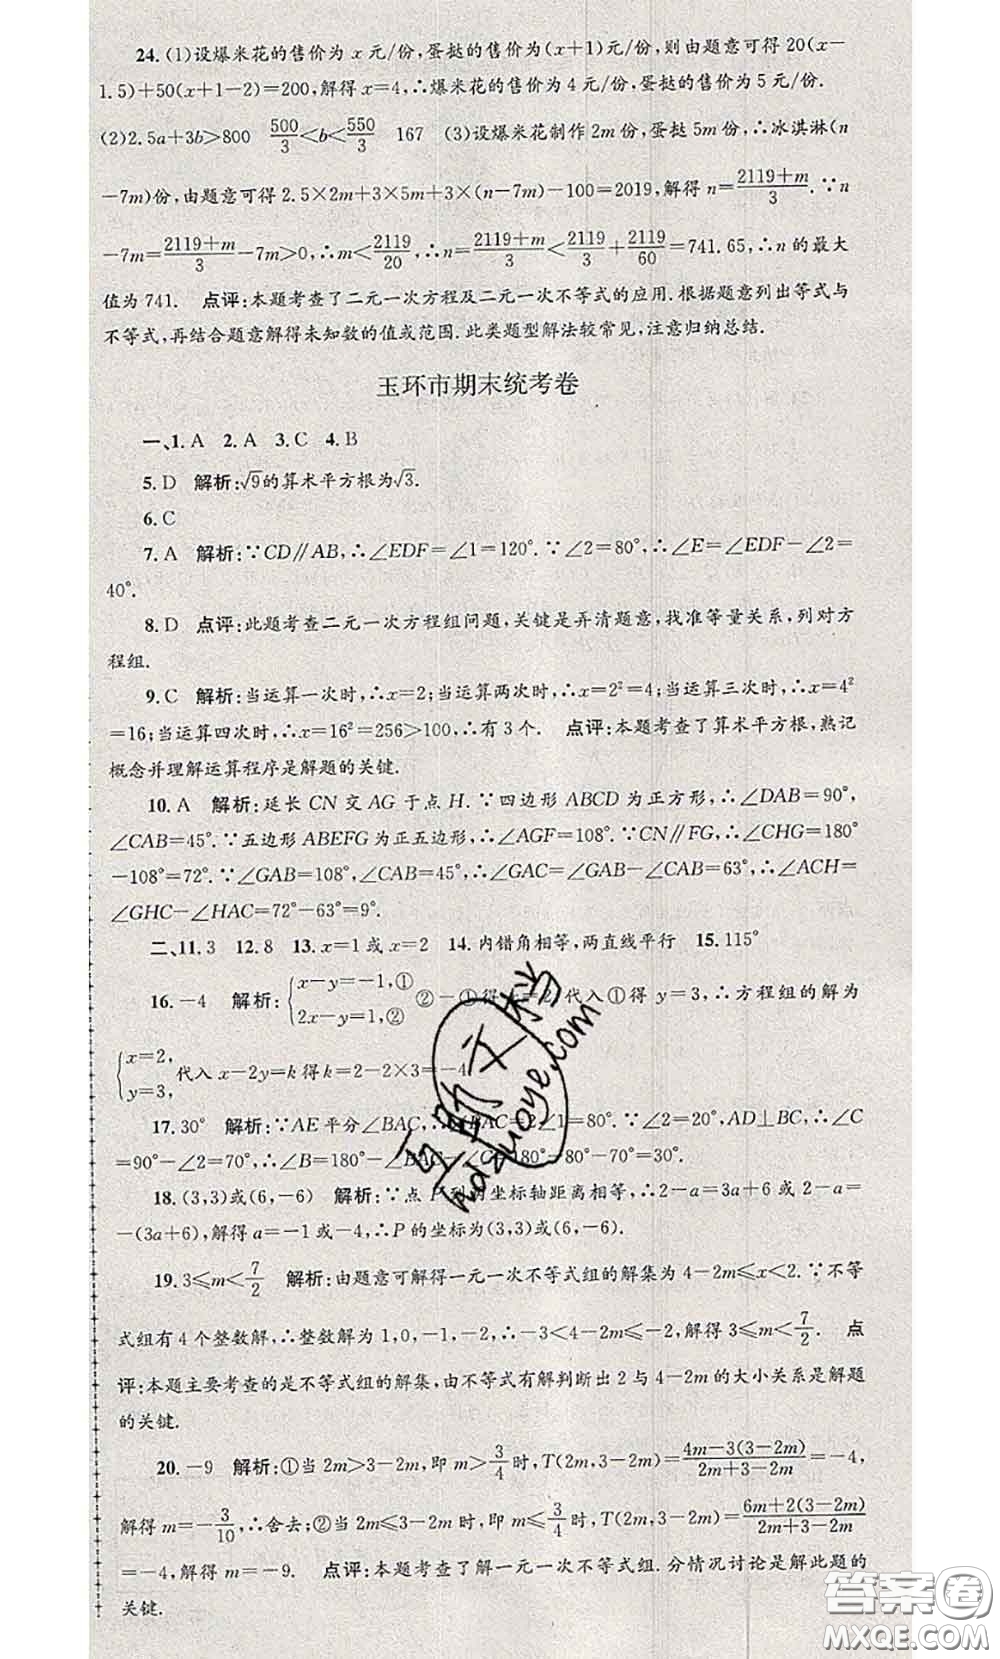 24.(1)设爆米花的售价为 x 元/份,蛋挞的售价为(x+1)元/份,则由题意可得 20(x-
1.5)+50(x+1-2)=200,解得 x=4,∴爆米花的售价为 4 元/份,蛋挞的售价为 5 元/份.
(2)2.5a+3b>800 500/3<b<550/3 167 (3)设爆米花制作 2m 份,蛋挞 5m 份,∴冰淇淋(n
-7m)份,由题意可得 2.5×2m+3×5m+3×(n-7m)-100=2019,解得 n=(2119+m)/3.∵n
-7m=(2119+m)/3-7m>0,∴m<2119/20,∴n=(2119+m)/3<2119/3+2119/60=741.65,∴n 的最大
值为 741. 点评:本题考查了二元一次方程及二元一次不等式的应用.根据题意列出等式与
不等式,再结合题意解得未知数的值或范围.此类题型解法较常见,注意归纳总结.
玉环市期末统考卷
一、1.A 2.A 3.C 4.B
5.D 解析:√9的算术平方根为√3.
6.C
7.A 解析:∵CD∥AB,∴∠EDF=∠1=120°.∵∠2=80°,∴∠E=∠EDF-∠2=
40°.
8.D 点评:此题考查二元一次方程组问题,关键是弄清题意,找准等量关系,列对方
程组.
9.C 解析:当运算一次时,∴x=2;当运算两次时,∴x=2²=4;当运算三次时,∴x=4²
=16;当运算四次时,∴x=16²=256>100,∴有 3 个. 点评:本题考查了算术平方根,熟记
概念并理解运算程序是解题的关键.
10.A 解析:延长 CN 交 AG 于点 H.∵四边形 ABCD 为正方形,∴∠DAB=90°,
∠CAB=45°.∵五边形 ABEFG 为正五边形,∴∠AGF=108°.∵CN∥FG,∴∠CHG=180°
-108°=72°.∵∠GAB=108°,∠CAB=45°,∴∠GAC=∠GAB-∠CAB=63°,∴∠ACH=
∠GHC-∠HAC=72°-63°=9°.
二、11.3 12.8 13.x=1 或 x=2 14.内错角相等,两直线平行 15.115°
16.-4 解析:{x-y=-1,① 2x-y=1,② ②-①得 x=2,代入①得 y=3,∴方程组的解为
{x=2, y=3, 代入 x-2y=k 得 k=2-2×3=-4.
17.30° 解析:∵AE 平分∠BAC,∴∠BAC=2∠1=80°.∵∠2=20°,AD⊥BC,∴∠C
=90°-∠2=70°,∴∠B=180°-∠BAC-∠C=180°-80°-70°=30°.
18.(3,3)或(6,-6) 解析:∵点 P 到两坐标轴距离相等,∴2-a=3a+6 或 2-a=
-(3a+6),解得 a=-1 或-4,∴P 的坐标为(3,3)或(6,-6).
19.3≤m<7/2 解析:由题意可解得一元一次不等式组的解集为 4-2m≤x<2.∵不等
式组有 4 个整数解,∴整数解为 1,0,-1,-2,∴-3<4-2m≤-2,解得 3≤m<7/2. 点
评:本题主要考查的是不等式组的解集,由不等式有解判断出 2 与 4-2m 的大小关系是解题
的关键.
20.-9 解析:①当 2m>3-2m,即 m>3/4时,T(2m,3-2m)=(4m-3(3-2m))/(2m+3-2m)=-4,
解得 m=-3/10,∴舍去;②当 2m≤3-2m时,即 m≤3/4时,T(2m,3-2m)=(6m+2(3-2m))/(2m+3-2m)
=-4,解得 m=-9. 点评:本题考查了解一元一次不等式组.分情况讨论是解此题的
关键.
答案卷
MXQE.COM